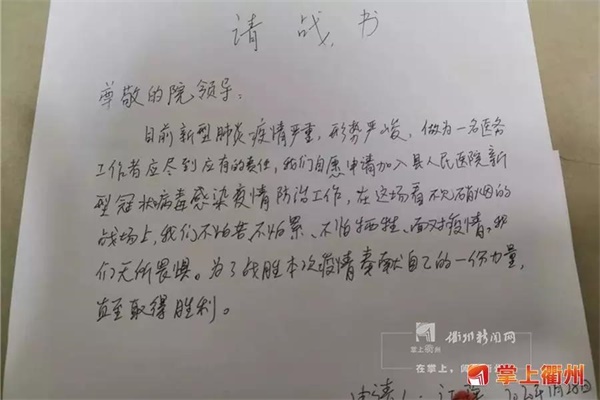 请战书
尊敬的院领导:
目前新型肺炎疫情严重,形势严峻,做为一名医务
工作者应尽到应有的责任,我们自愿申请加入县人民医院新
型冠状病毒感染疫情防治工作,在这场看不见硝烟的
战场上,我们不怕苦不怕累、不怕牺牲、面对疫情,我
们无所畏惧。为了战胜本次疫情奉献自己的一份力量,
直至取得胜利。
掌上衢州 衢州新闻网
在掌上,
申请人: 2020年1月
掌上衢州